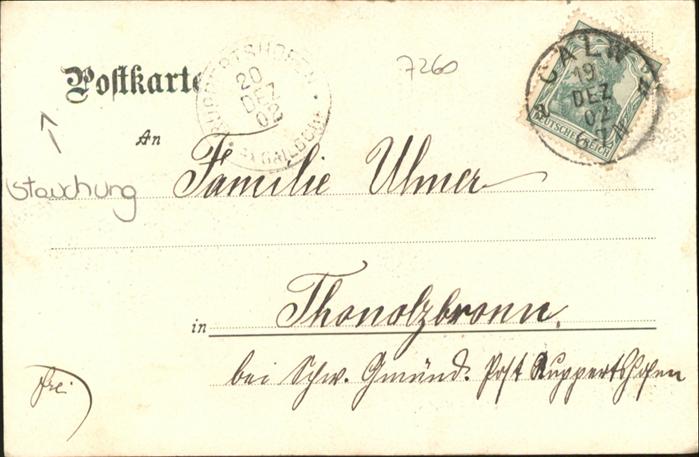 Postkarte
RUPPERTSHOFEN
20
DEZ
02
A/ GAILDORF
7260
CALW
19
DEZ
02
DEUTSCHES REICH
An
Stauchung
Familie Ulmer
in
Thonolzbronn.
bei Schw. Gmünd. Post Ruppertshofen
frei